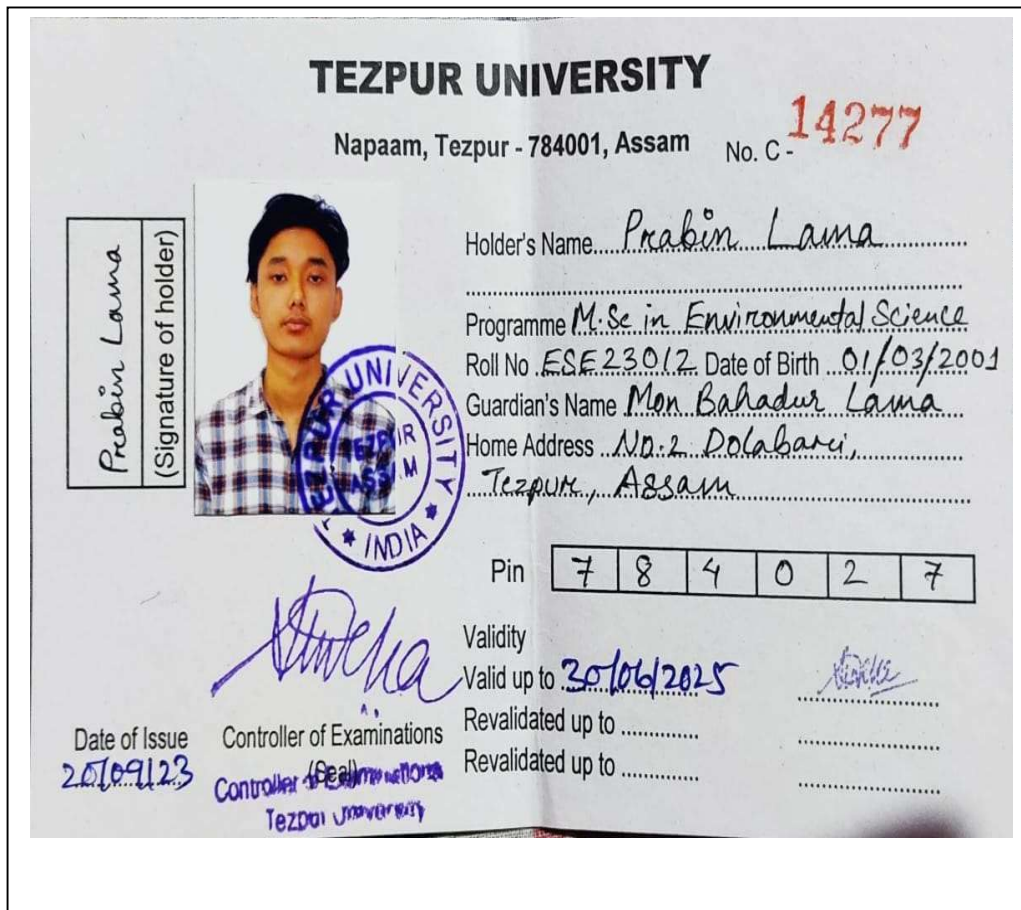 TEZPUR UNIVERSITY
Napaam, Tezpur - 784001, Assam
No. C - 14277
Prabin Lama
(Signature of holder)
Holder's Name Prabin Lama
Programme M.Sc in Environmental Science
Roll No ESE23012 Date of Birth 01/03/2001
Guardian's Name Mon Bahadur Lama
Home Address No.2 Dolabari,
Tezpur, Assam
TEZPUR UNIVERSITY
TEZPUR
ASSAM
* INDIA *
Pin 7 8 4 0 2 7
Validity
Valid up to 30/06/2025
Revalidated up to
Revalidated up to
Date of Issue
20/09/23
Controller of Examinations
(Seal)
Controller of Examinations
Tezpur University